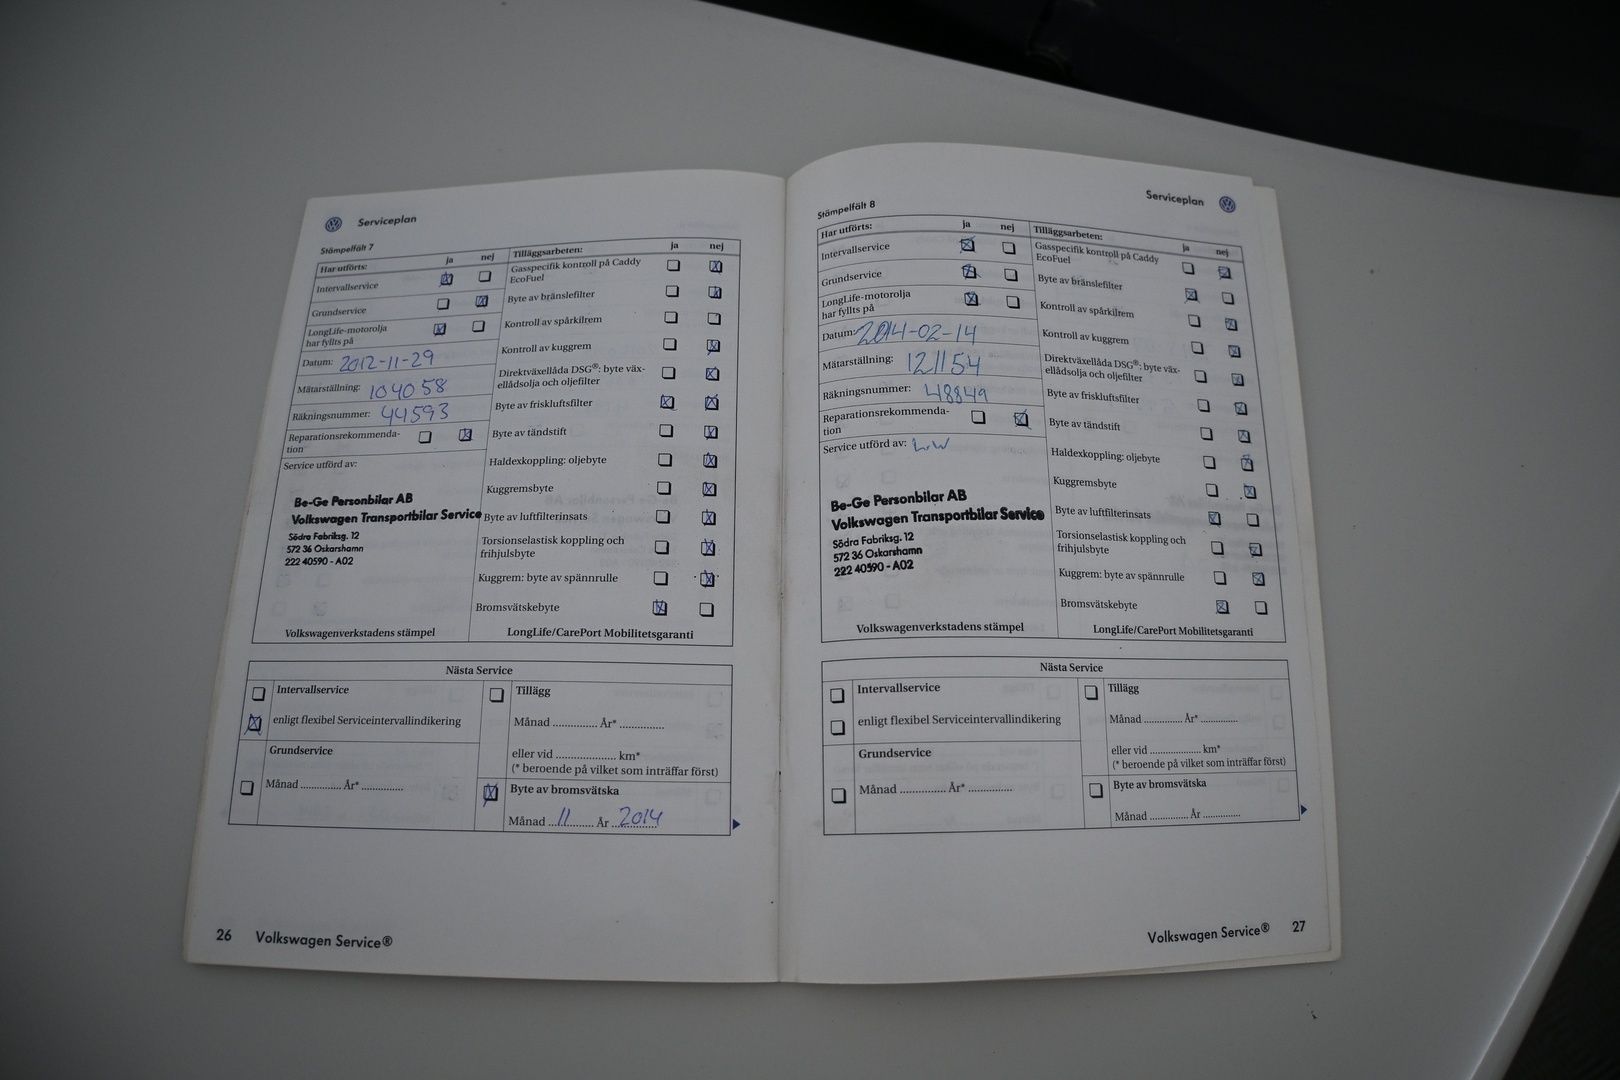 Serviceplan
Stämpelfält 7
Har utförts: ja nej
Intervallservice
Grundservice
LongLife-motorolja
har fyllts på
Datum: 2012-11-29
Mätarställning: 104058
Räkningsnummer: 44593
Reparationsrekommenda-
tion
Service utförd av:
Be-Ge Personbilar AB
Volkswagen Transportbilar Service
Södra Fabriksg. 12
572 36 Oskarshamn
222 40590 - A02
Volkswagenverkstadens stämpel
Tilläggsarbeten: ja nej
Gasspecifik kontroll på Caddy
EcoFuel
Byte av bränslefilter
Kontroll av spårkilrem
Kontroll av kuggrem
Direktväxellåda DSG®: byte väx-
ellådsolja och oljefilter
Byte av friskluftsfilter
Byte av tändstift
Haldexkoppling: oljebyte
Kuggremsbyte
Byte av luftfilterinsats
Torsionselastisk koppling och
frihjulsbyte
Kuggrem: byte av spännrulle
Bromsvätskebyte
LongLife/CarePort Mobilitetsgaranti
Nästa Service
Intervallservice
enligt flexibel Serviceintervallindikering
Grundservice
Månad .............. År* ..............
Tillägg
Månad .............. År* ..............
eller vid .................... km*
(* beroende på vilket som inträffar först)
Byte av bromsvätska
Månad 11 År 2014
26 Volkswagen Service®
Serviceplan
Stämpelfält 8
Har utförts: ja nej
Intervallservice
Grundservice
LongLife-motorolja
har fyllts på
Datum: 2014-02-14
Mätarställning: 121154
Räkningsnummer: 48849
Reparationsrekommenda-
tion
Service utförd av:
Be-Ge Personbilar AB
Volkswagen Transportbilar Service
Södra Fabriksg. 12
572 36 Oskarshamn
222 40590 - A02
Volkswagenverkstadens stämpel
Tilläggsarbeten: ja nej
Gasspecifik kontroll på Caddy
EcoFuel
Byte av bränslefilter
Kontroll av spårkilrem
Kontroll av kuggrem
Direktväxellåda DSG®: byte väx-
ellådsolja och oljefilter
Byte av friskluftsfilter
Byte av tändstift
Haldexkoppling: oljebyte
Kuggremsbyte
Byte av luftfilterinsats
Torsionselastisk koppling och
frihjulsbyte
Kuggrem: byte av spännrulle
Bromsvätskebyte
LongLife/CarePort Mobilitetsgaranti
Nästa Service
Intervallservice
enligt flexibel Serviceintervallindikering
Grundservice
Månad .............. År* ..............
Tillägg
Månad .............. År* ..............
eller vid .................... km*
(* beroende på vilket som inträffar först)
Byte av bromsvätska
Månad .............. År ..............
Volkswagen Service® 27